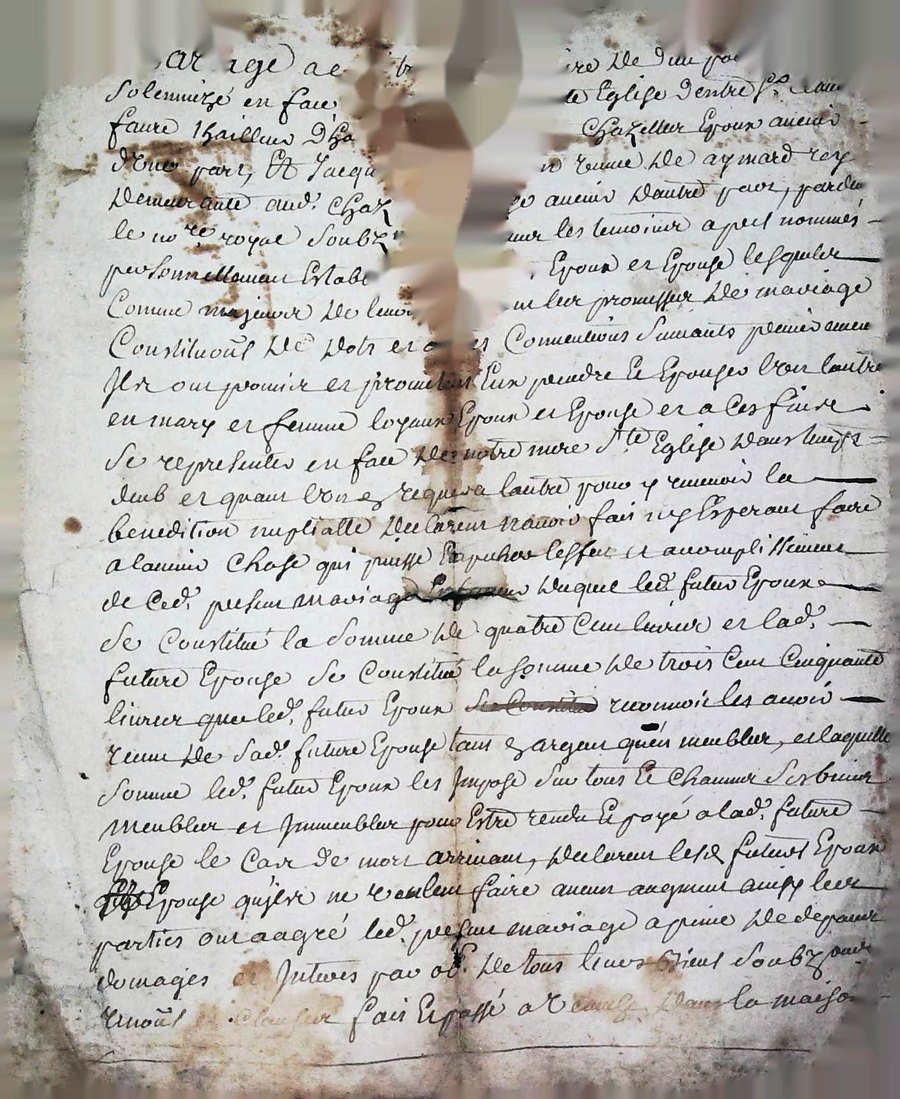 ar age de
Solennizé en face Eglise Dentre
faure thailleur D'ha Chazelleur Epoux aucuns
D'une part, Et Jacqu veuve De aymard rey
Demeurante aud. Chaz aucuns Dautre part, parde
le no.re royal Soubz les temoins apres nommés
personnellement Estab Epoux et Epouse lesquels
Comme majeurs De leurs promesses De mariage
Constituons De Dots et Conventions Suivants premierement
Ils ont promis et promettent Eux prendre Et Epouser l'un lautre
en mary et femme loyaux Epoux et Epouse et a ces fins
Se representer en face De notre mere S.te Eglise Dans temps
deub et quant lun en requera lautre pour y recevoir la
benedition nuptialle Declarent navoir fait ny Esperant faire
alaucune Chose qui puisse Empecher leffet et acomplissement
de Ced. present mariage Duquel led. futur Epoux
Se Constitue la Somme De quatre Cent livres et lad.
future Epouse Se Constitue la Somme De trois Cent Cinquante
livres que led. futur Epoux reconnoit les avoir
receu De Sad. future Epouse tant en argent qu'en meubles, et laquelle
Somme led. futur Epoux les Impose Sur tous Et Chacuns Ses biens
meubles et Immeubles pour Estre rendu Et payé a lad. future
Epouse le Cas De mort arrivant, Declarent lesd. futurs Epoux
Epouse qu'ils ne veulent faire aucun augment ainsy les
parties ont aagré led. present mariage a peine De depens
domages et Interes par ob. De tous leurs Biens Soubz
renons et Clauses fait Et passé a Dans la maison